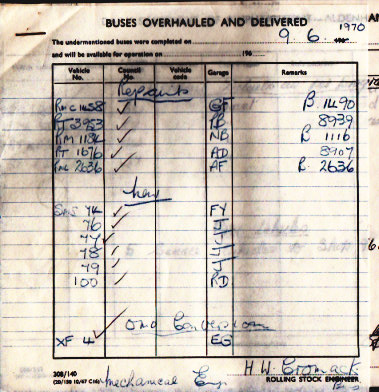 BUSES OVERHAULED AND DELIVERED
1970
The undermentioned buses were completed on 9.6.
and will be available for operation on 196
Vehicle No. Council No. Vehicle code Garage Remarks
Repaints
RMC 1458 ✓ GF B 1490
RT 3953 ✓ PB 8939
RM 1116 ✓ NB B 1116
RT 1676 ✓ RD 3907
RML 2636 ✓ AF B. 2636
New
SMS 74 ✓ FY
76 ✓
77 ✓
78 ✓
79 ✓
100 ✓ RD
OMO Conversion
XF 4 ✓ EG
308/140
Mechanical Eng.
H.W. Cromack
ROLLING STOCK ENGINEER